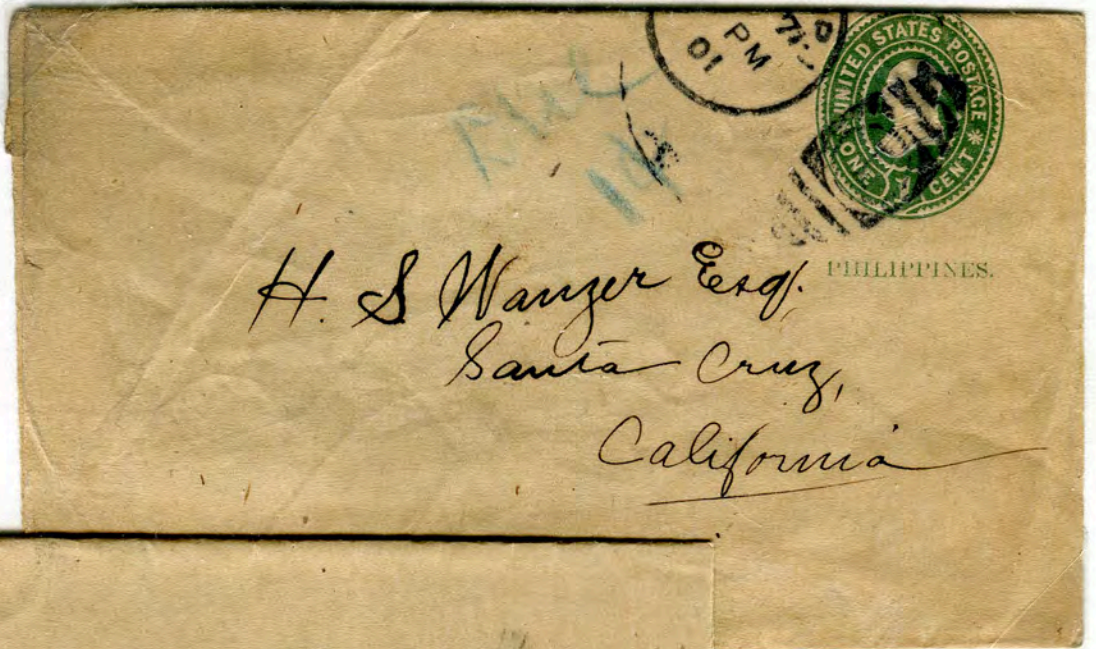 PM
01
UNITED STATES POSTAGE
ONE CENT
PHILIPPINES.
H. S Wanzer Esq.
Santa Cruz,
California